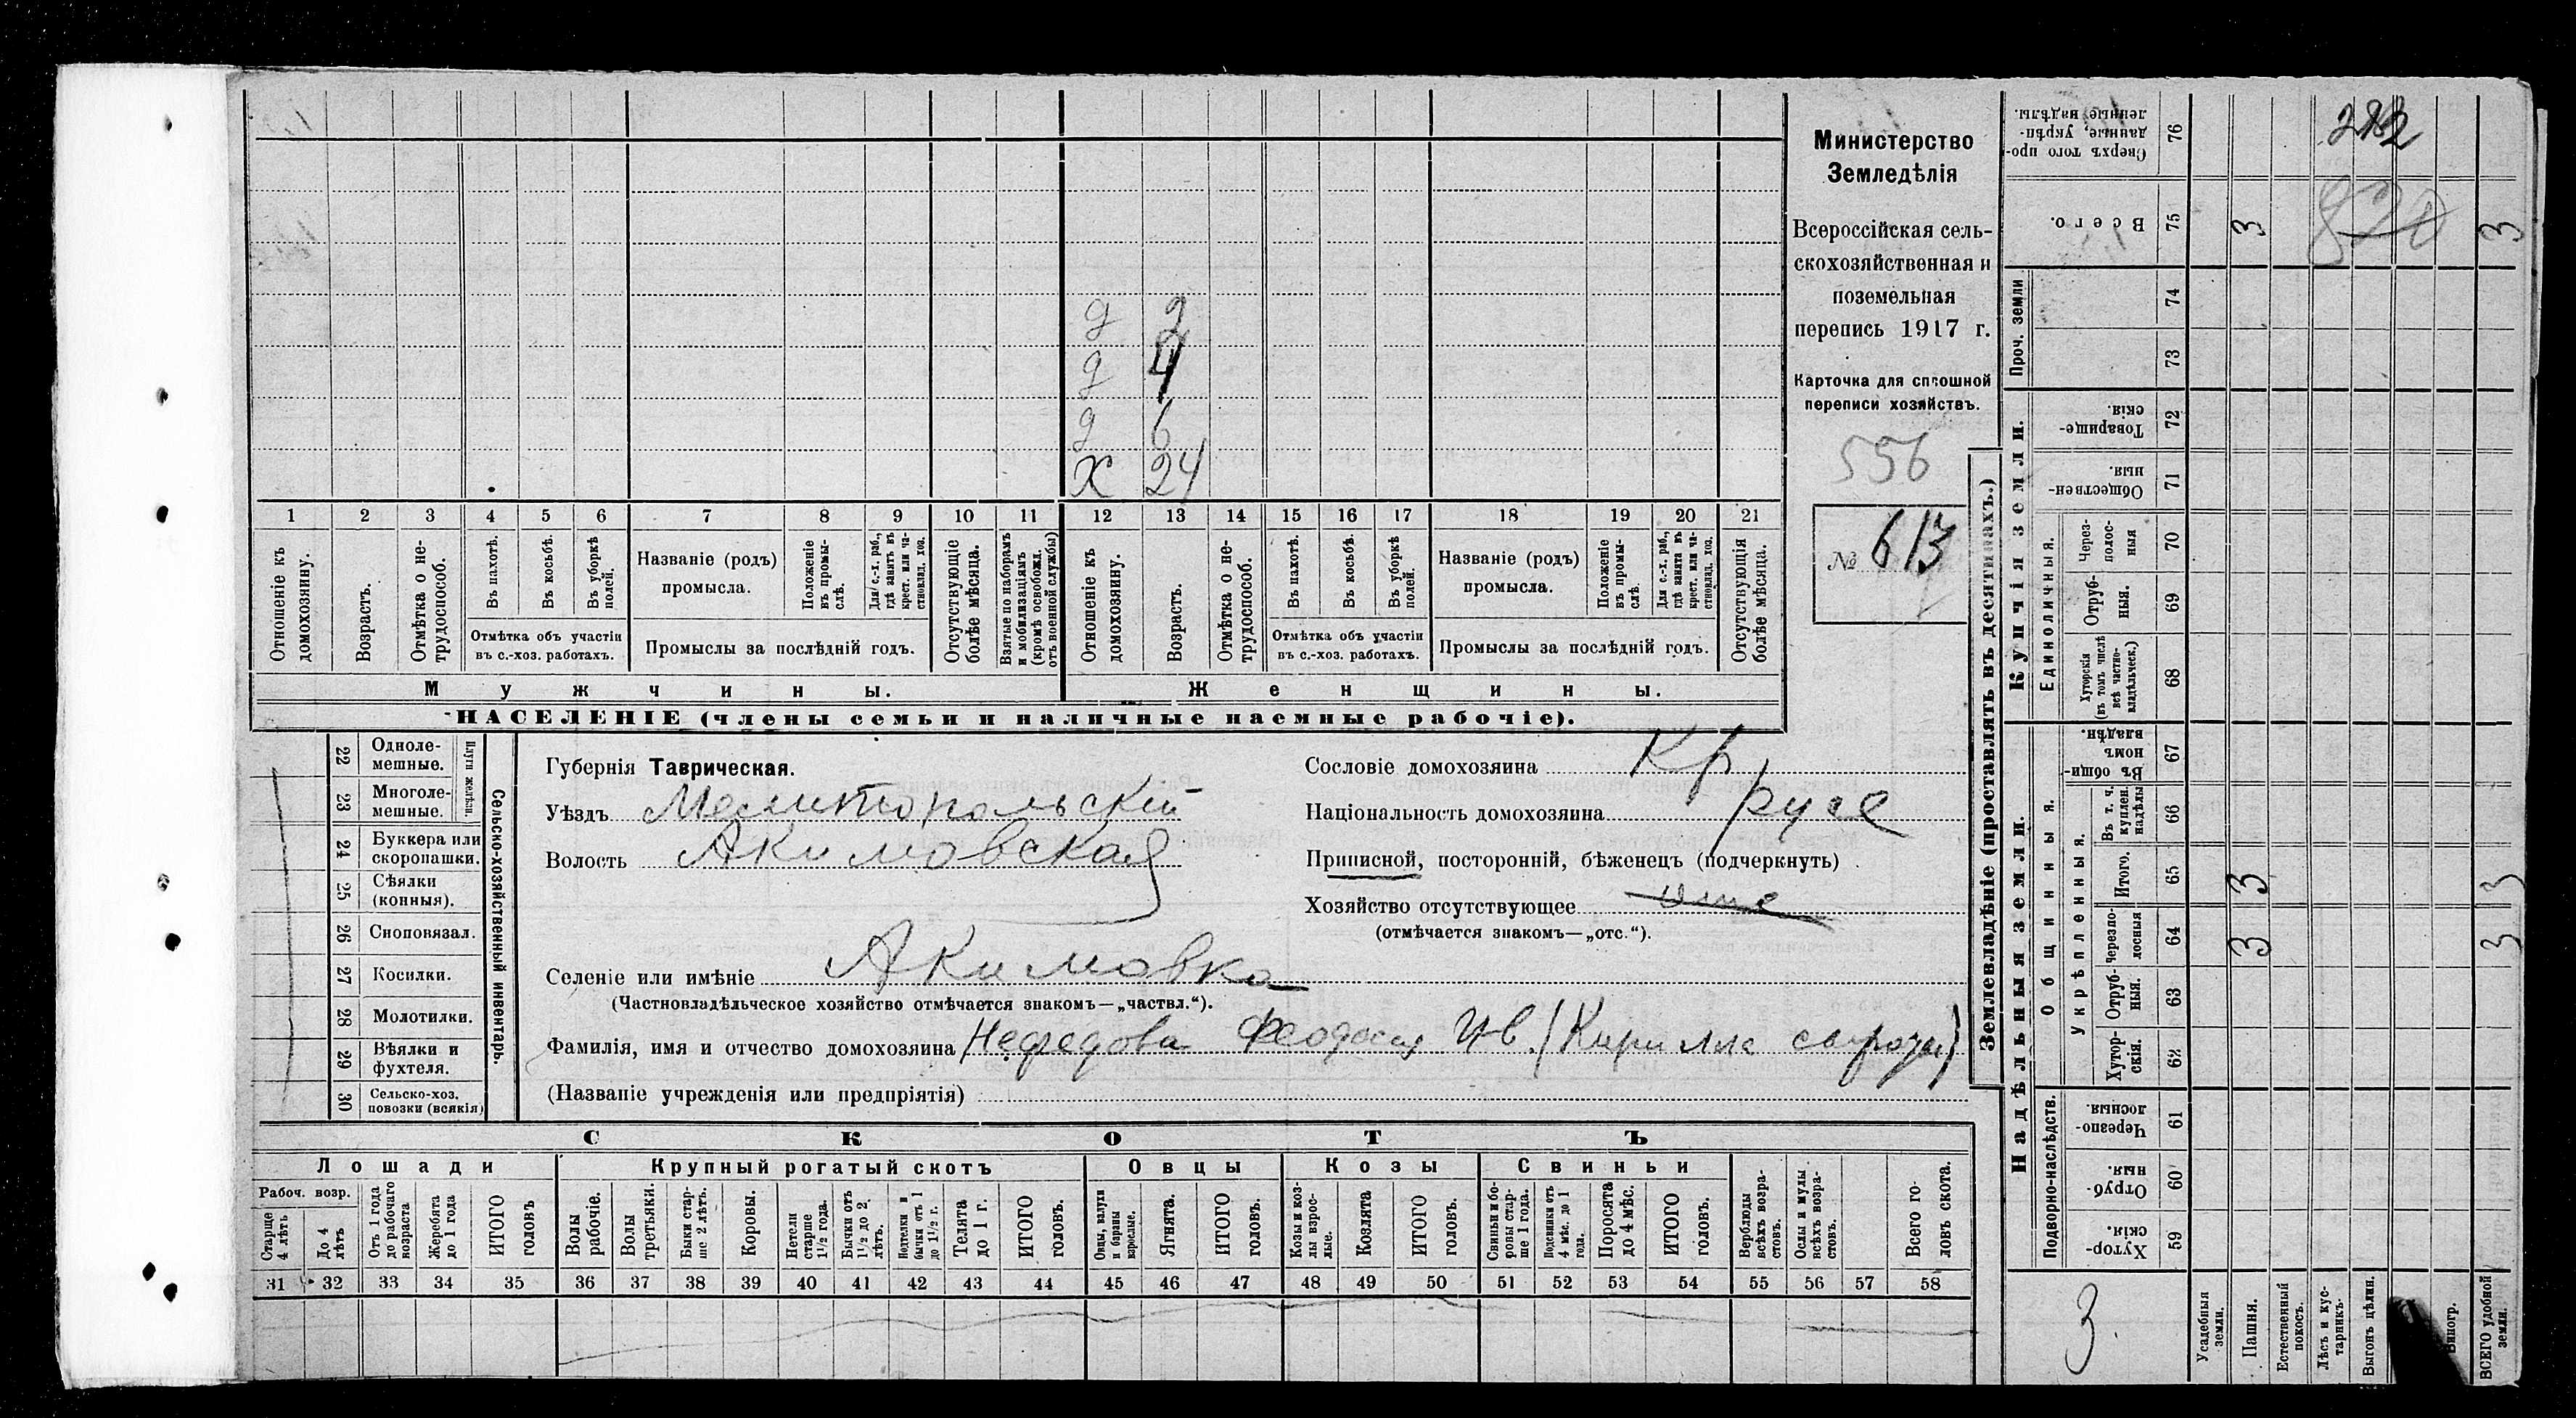 Министерство
Земледѣлія
Всероссійская сель-
скохозяйственная и
поземельная
перепись 1917 г.
Карточка для сплошной
переписи хозяйствъ.
556
№ 613
д 2
д 4
д 6
Х 24
1 2 3 4 5 6 7 8 9 10 11 12 13 14 15 16 17 18 19 20 21
Отношеніе къ домохозяину.
Возрастъ.
Отмѣтка о не-трудоспособ.
Въ пахотѣ.
Въ косьбѣ.
Въ уборкѣ полей.
Отмѣтка объ участіи
въ с.-хоз. работахъ.
Названіе (родъ)
промысла.
Положеніе въ промы-слѣ.
Для с.-х. раб., гдѣ занятъ въ крест. или ча-стновлад. хоз.
Промыслы за послѣдній годъ.
Отсутствующіе болѣе мѣсяца.
Взятые по наборамъ и мобилизаціямъ (кромѣ освобожд. отъ военной службы)
Отношеніе къ домохозяину.
Возрастъ.
Отмѣтка о не-трудоспособ.
Въ пахотѣ.
Въ косьбѣ.
Въ уборкѣ полей.
Отмѣтка объ участіи
въ с.-хоз. работахъ.
Названіе (родъ)
промысла.
Положеніе въ промы-слѣ.
Для с.-х. раб., гдѣ занятъ въ крест. или ча-стновлад. хоз.
Промыслы за послѣдній годъ.
Отсутствующія болѣе мѣсяца.
Мужчины.
Женщины.
НАСЕЛЕНІЕ (члены семьи и наличные наемные рабочіе).
Сельско-хозяйственный инвентарь.
Плуги желѣзн.
22 Одноле-мешные.
23 Многоле-мешные.
24 Буккера или скоропашки.
25 Сѣялки (конныя).
26 Сноповязал.
27 Косилки.
28 Молотилки.
29 Вѣялки и фухтеля.
30 Сельско-хоз. повозки (всякія)
Губернія Таврическая.
Уѣздъ Мелитопольскій
Волость Акимовская
Селеніе или имѣніе Акимовка
(Частновладѣльческое хозяйство отмѣчается знакомъ—„частвл.“).
Фамилія, имя и отчество домохозяина Нефедова Феодосия Ив. (Кирилла сироты)
(Названіе учрежденія или предпріятія)
Сословіе домохозяина Кр.
Національность домохозяина русс
Приписной, посторонній, бѣженецъ (подчеркнуть)
Хозяйство отсутствующее
(отмѣчается знакомъ—„отс.“).
СКОТЪ
Лошади
Крупный рогатый скотъ
Овцы
Козы
Свиньи
Рабоч. возр.
Старше 4 лѣтъ
До 4 лѣтъ
Отъ 1 года до рабочаго возраста
Жеребята до 1 года
ИТОГО головъ
Волы рабочіе.
Волы третьяки.
Быки стар-ше 2 лѣтъ.
Коровы.
Нетели старше 1½ года.
Бычки отъ 1½ до 2 лѣтъ.
Подтелки и бычки отъ 1 до 1½ г.
Телята до 1 г.
ИТОГО головъ.
Овцы, валухи и бараны взрослые.
Ягнята.
ИТОГО головъ.
Козы и коз-лы взрос-лые.
Козлята
ИТОГО головъ.
Свиньи и бо-ровы стар-ше 1 года.
Подсвинки отъ 4 мѣс. до 1 года.
Поросята до 4 мѣс.
ИТОГО головъ.
Верблюды всѣхъ возра-стовъ.
Ослы и мулы всѣхъ возра-стовъ.
Всего го-ловъ скота.
31 32 33 34 35 36 37 38 39 40 41 42 43 44 45 46 47 48 49 50 51 52 53 54 55 56 57 58
Землевладѣніе (проставлять въ десятинахъ.)
Надѣльныя земли.
Купчія земли.
Проч. земли
Подворно-наслѣдств.
Общинныя.
Укрѣпленныя.
Единоличныя.
76 Сверхъ того про-данные, укрѣп-ленные надѣлы.
75 Всего. 3 3
74
73
72 Товарище-скія.
71 Обществен-ныя.
70 Через-полос-ныя
69 Отруб-ныя.
68 Хуторскія (въ томъ числѣ всѣ частно-владѣльческ.)
67 Въ общи-номъ владѣн.
66 Въ т. ч. куплен. надѣлы
65 Итого. 3 3
64 Черезпо-лосныя 3 3
63 Отруб-ныя.
62 Хутор-скія.
61 Черезпо-лосныя.
60 Отруб-ныя.
59 Хутор-скія.
3
Усадебныя земли.
Пашня.
Естественный покосъ.
Лѣсъ и кус-тарникъ.
Выгонъ цѣлин.
Виногр.
ВСЕГО удобной земли.